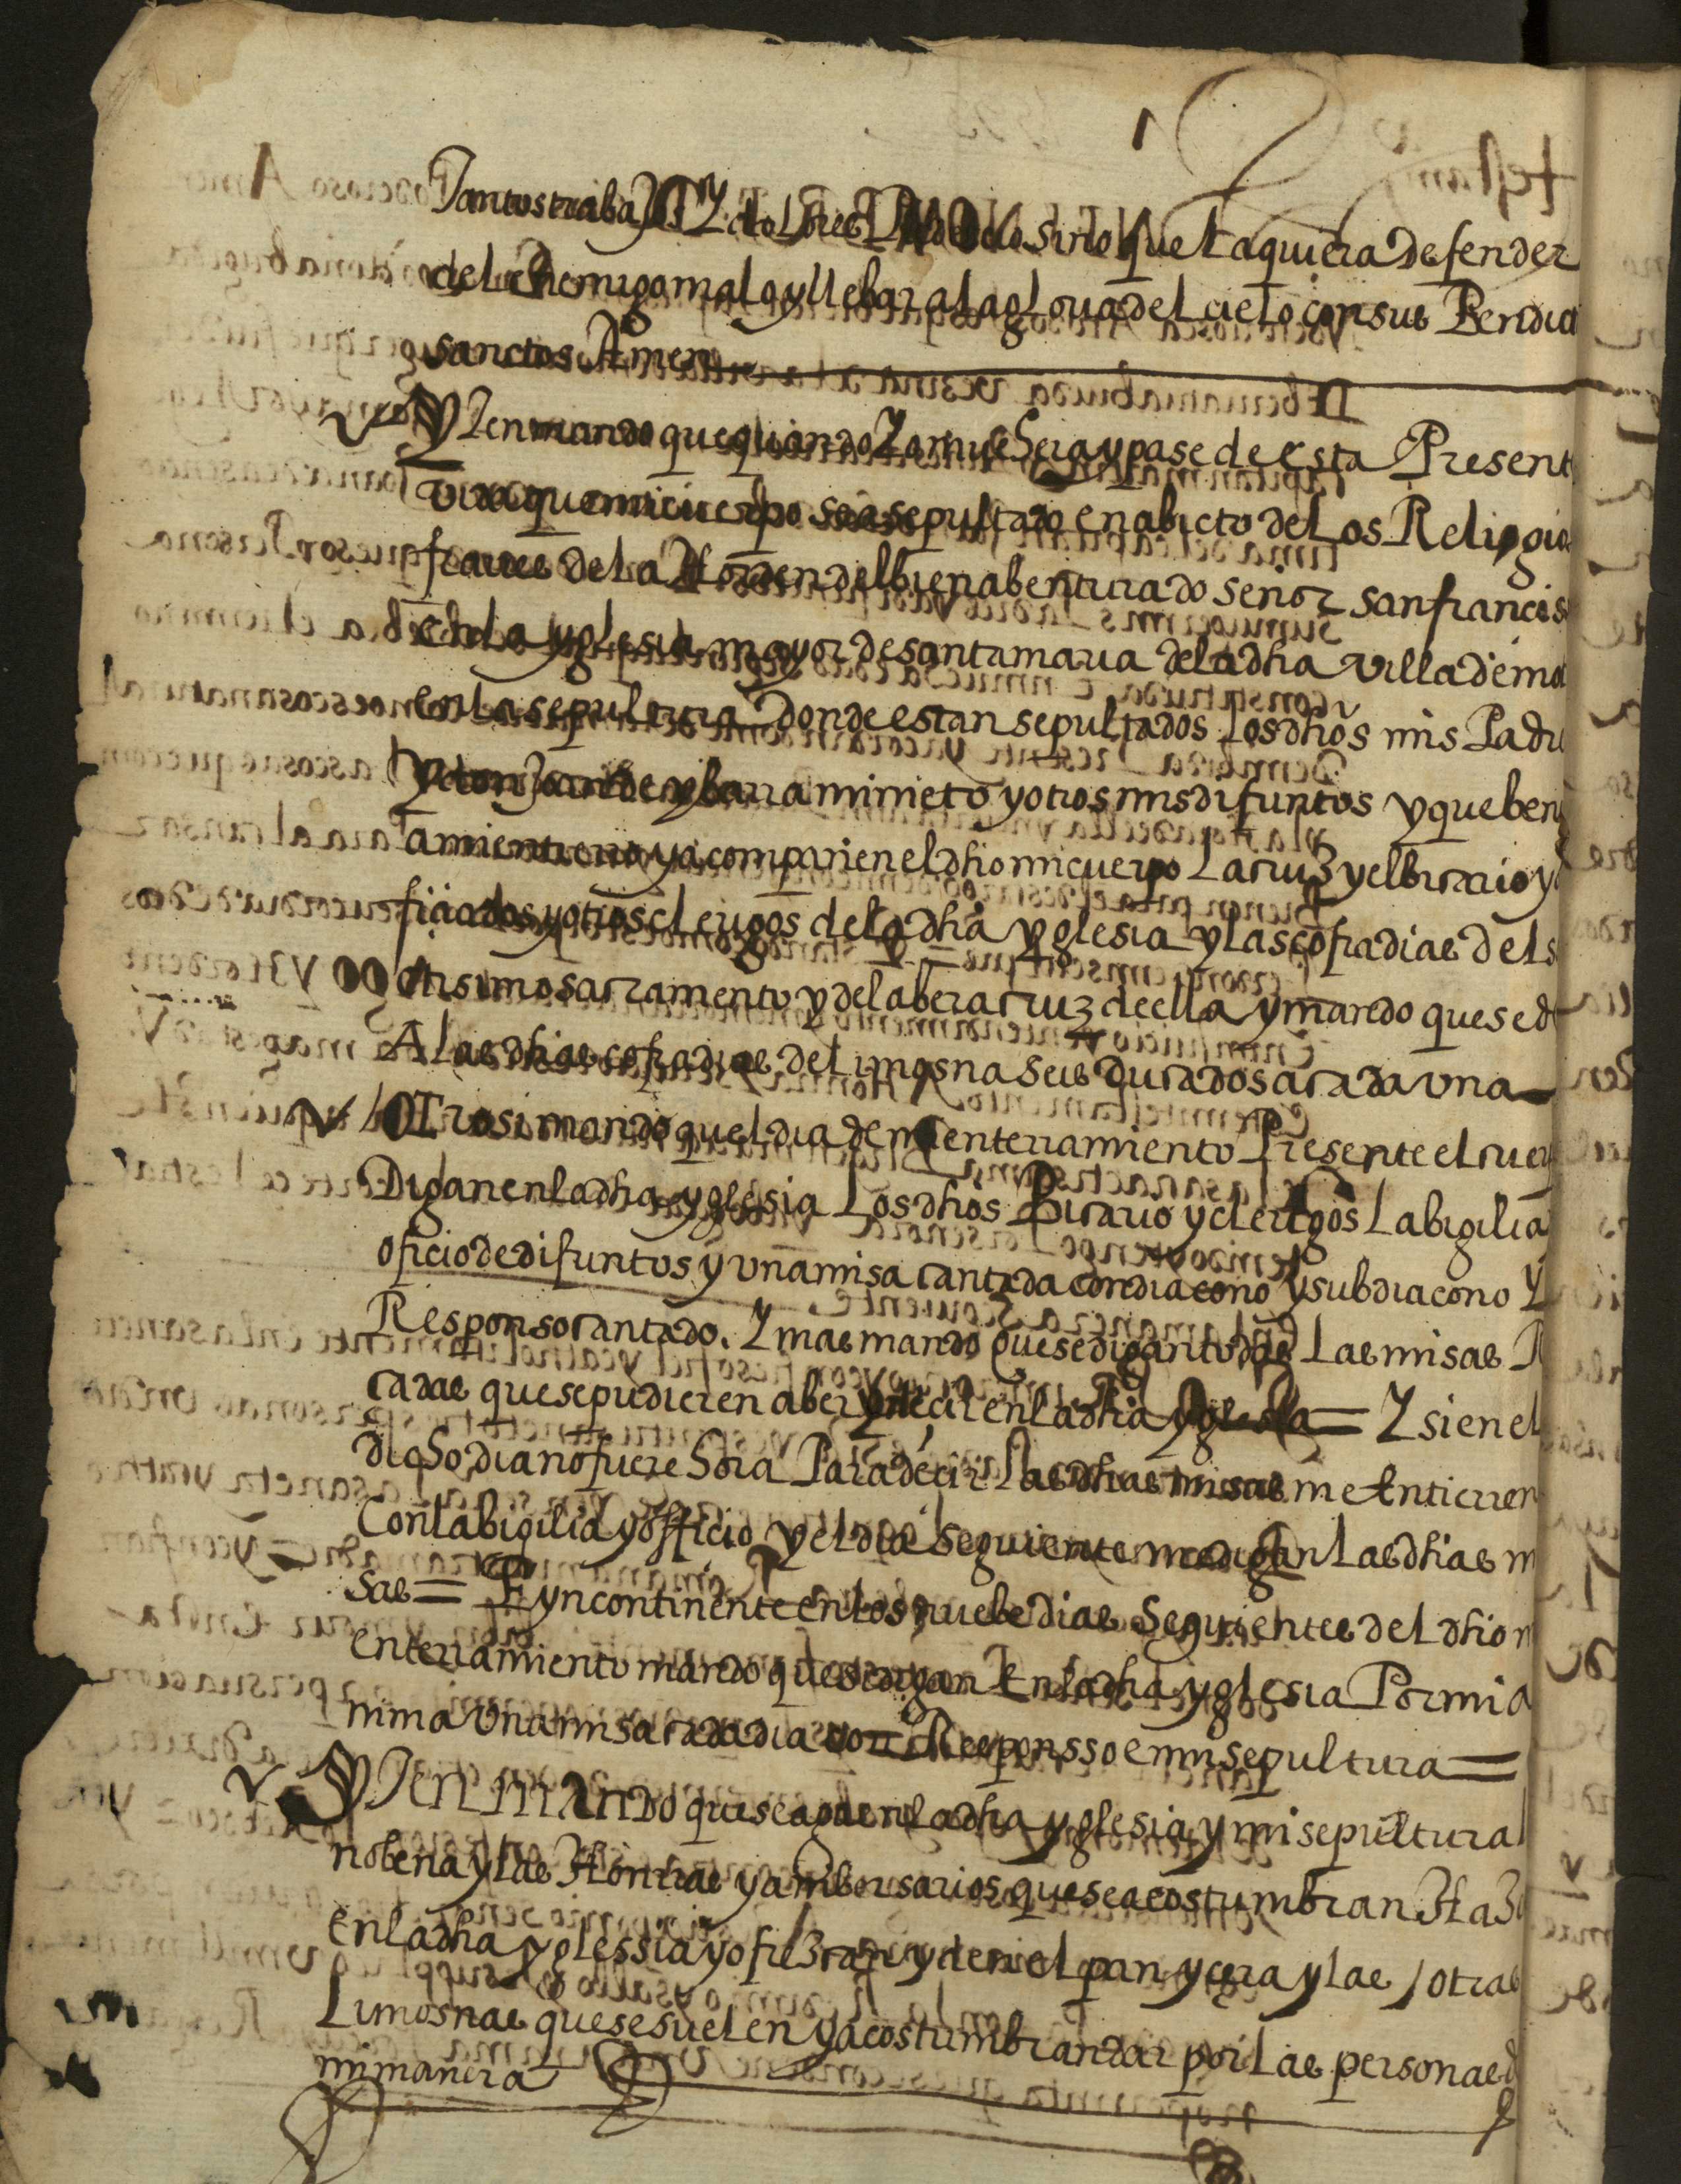 Tantos trabajos Y dolores sino que la quiera defender
del enemigo malo y llebar a la gloria del cielo con sus Bendia
sanctos Amen
Yten mando que quando Yo muera y pase de esta Present
vida que mi cuerpo sea sepultado en abicto de Los Religio
frailes de La Horden del bien abenturado señor san francis
en la yglesia mayor de santa maria de la dha villa de ma
en la sepultura donde estan sepultados Los dhos mis Padr
y don Juan de ybarra mi nieto y otros mis difuntos y que ben
a mi entierro y acompañen el dho mi cuerpo La cruz y el bicario y
ficiados y otros clerigos de la dha yglesia y las cofradias del s
ctisimo sacramento y de la bera cruz de ella y mando que se d
A las dhas cofradias de limosna seis ducados a cada una
Otrosi mando que el dia de mi enterramiento Presente el cuer
Digan en la dha yglesia Los dhos Bicario y clerigos La bigilia
oficio de difuntos y una misa cantada con diacono y subdiacono Y
Responso cantado. Y mas mando que se digan todas Las misas R
cadas que se pudieren aber y decir en la dha yglesia = Y si en el
dicho dia no fuere hora Para decir Las dhas misas me Entierren
Con la bigilia y officio y el dia siguiente me digan Las dhas m
sas = E yncontinente en los nuebe dias siguientes del dho m
enterramiento mando que se digan En la dha yglesia Por mi a
nima una misa cada dia con Responsso en mi sepultura =
Yten mando que se aga en la dha yglesia y mi sepultura
nobena y las Honrras y anibersarios que se acostumbran Haz
en la dha yglessia y ofrezcan y den el pan y cera y las otras
Limosnas que se suelen y acostumbran dar por Las personas d
mi manera